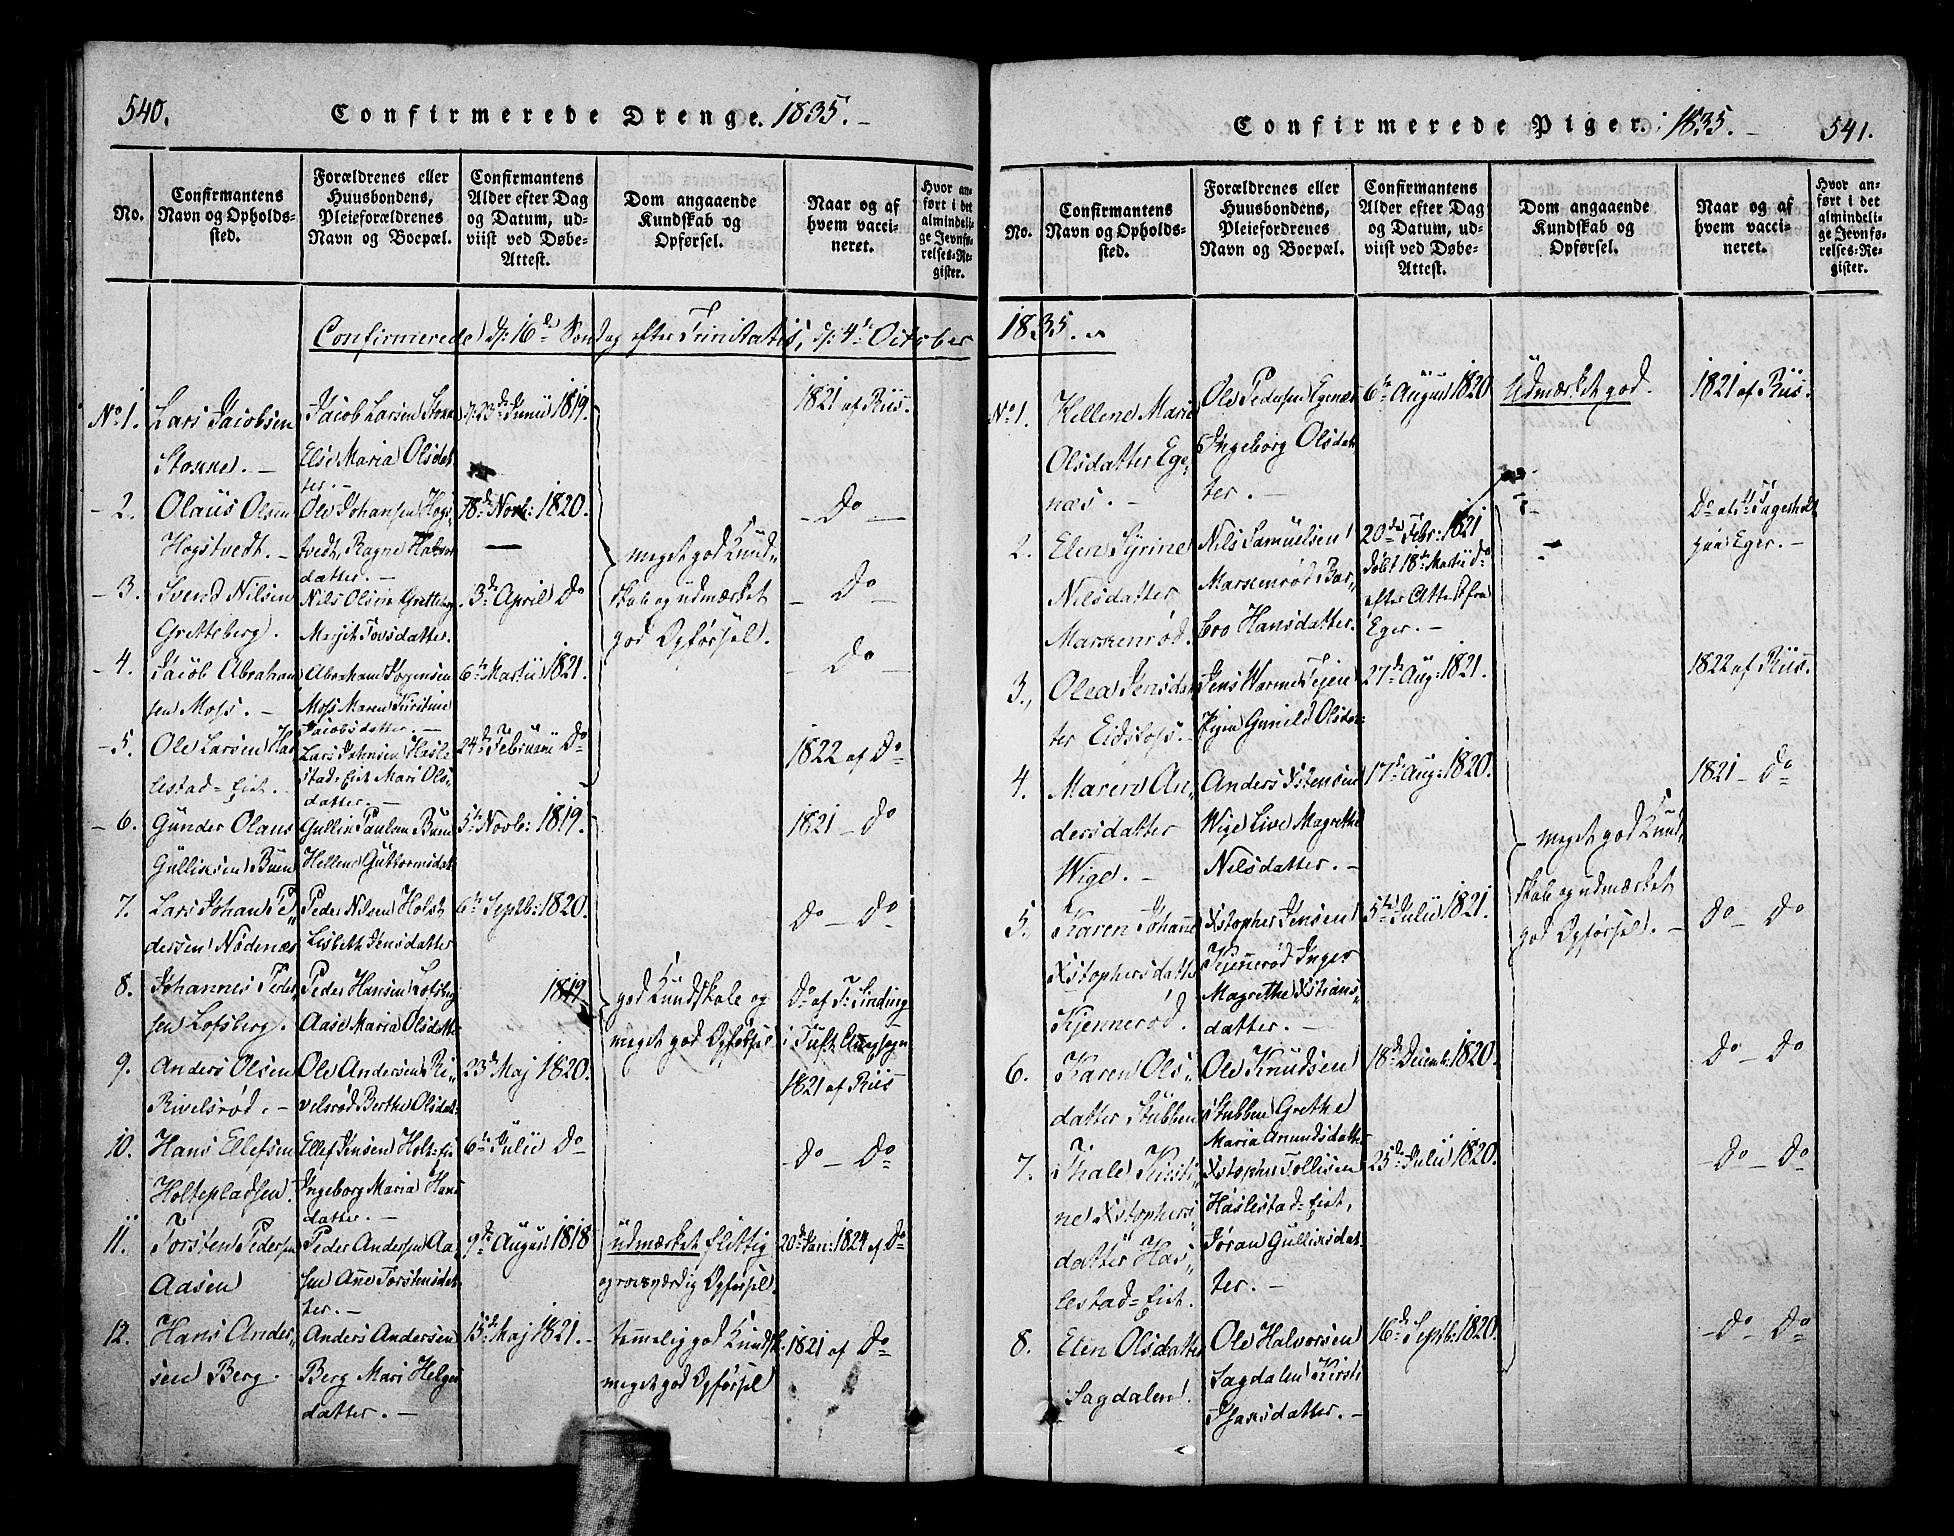 540.
Confirmerede Drenge. 1835.
No.
Confirmantens Navn og Opholds-sted.
Forældrenes eller Huusbondens, Pleieforældrenes Navn og Boepæl.
Confirmantens Alder efter Dag og Datum, ud-viist ved Døbe-Attest.
Dom angaaende Kundskab og Opførsel.
Naar og af hvem vacci-neret.
Hvor an-ført i det almindeli-ge Jevnfø-relses-Re-gister.
Confirmerede d: 16de Søndag efter Trinitatis, d: 4de October
No 1.
Lars Jacobsen
Stokke. -
Jacob Larsen
Else Maria Olsdat
ter. -
Junii 1819.
1821 af Riis.
- 2.
Olaus Olsen
Hogstvedt. -
Ole Johansen Hogs,
tvedt, Ragne
datter. -
18de Novb: 1820.
- Do -
meget god Kund-
skab og udmærket
god Opførsel.
- 3.
Svend Nilsen
Gretteberg.
Nils Olsen Gretteberg
Marjit Tovsdatter.
3de April Do
- Do -
- 4.
Jacob Abraham
sen Moss. -
Abraham Jørgensen
Moss Maren Kirstine
Jacobsdatter. -
6te Martii 1821.
- Do -
- 5.
Ole Larsen Has
lestad-Eiet. -
Lars Johnsen Hasle
stad-Eiet Mari Ols,
datter. -
24de Februarii Do
1822 af Do
- 6.
Gunder Olaus
Gulliksen Buen
Gullik Paulsen Buen
Hellene Guttormsdatt
5te Novb: 1819.
1821 - Do
7.
Lars Johan Pe
dersen Nødenæs
Peder Nilsen Holst
Lisbeth Jensdatter
6te Septb: 1820.
Do - Do
8.
Johannes Peder
sen Lofsberg.
Peder Hansen Lofsberg
Aase Maria Olsdatter
1819
god Kundskab og
meget god Opførsel
Do af Sinding
i Tuft
9.
Anders Olsen
Rivelsrød. -
Ole Andersen Ri,
velsrød Berthe Olsdat.
23de Maj 1820.
1821 af Riis
10.
Hans Ellefsen
Holtepladsen.
Ellef Jensen Holt-Eie
Ingeborg Maria Hans
datter. -
6te Julii Do
- Do - Do
11.
Torsten Pedersen
Aasen
Peder Andersen Aa,
sen Ane Torstensdat
ter. -
9de August 1818
udmærket flittig
og roesværdig Opførsel.
20de Jan: 1824 af Do
12.
Hans Ander,
sen Berg.
Anders Andersen
Berg Mari Helges
datter. -
15de Maj 1821. -
temmelig god Kundsk.
meget god Opførsel
1821 af Do
Confirmerede Piger. 1835. -
541.
No.
Confirmantens Navn og Opholds-sted.
Forældrenes eller Huusbondens, Pleiefordrenes Navn og Boepæl.
Confirmantens Alder efter Dag og Datum, ud-viist ved Døbe-Attest.
Dom angaaende Kundskab og Opførsel.
Naar og af hvem vacci-neret.
Hvor an-ført i det almindeli-ge Jevnfø-relses-Re-gister.
1835.
No. 1.
Hellene Marie
Olsdatter Ege,
næs. -
Ole Pedersen Egenæs
Ingeborg Olsdat
ter. -
6te August 1820
Udmærket god.
1821 af Riis.
2.
Elen Syrine
Nilsdatter
Markenrød.
Nils Samuelsen
Markenrød Bar,
bro Hansdatter.
20de Febr: 1821
døbt 18de Martii Do
efter Attest fra
Eger. -
Do af
paa Eger. -
3.
Olea Jensdat
ter Eidsfoss.
Jens
Pigen Gunild Olsdat
27de Aug: 1821.
1822 af Riis.
4.
Maren An,
dersdatter
Wige. -
Anders Xstensen
Wige Live Magrethe
Nilsdatter. -
17de Aug: 1820.
meget god Kund,
skab og udmærket
god Opførsel. -
1821 - Do
5.
Karen Johanne
Xstophersdatter
Kjennerød.
Xstopher Jensen
Kjennerød Inger
Magrethe Xstians,
datter. -
5te Julii 1821.
Do - Do
6.
Karen Ols,
datter Stubben
Ole Knudsen
Stubben Grethe
Maria Amundsdatter
18de Decemb: 1820.
Do - Do
7.
Thale Kirsti,
ne Xstophers
datter Has,
lestad-Eiet.
Xstopher Tollefsen
Haslestad-Eiet,
Jøran Gulliksdat,
ter. -
25de Julii 1820.
- Do - Do
8.
Elen Olsdatter
Sagdalen.
Ole Halvorsen
Sagdalen Kirsti
Isaksdatter. -
16de Septb: 1820.
- Do - Do